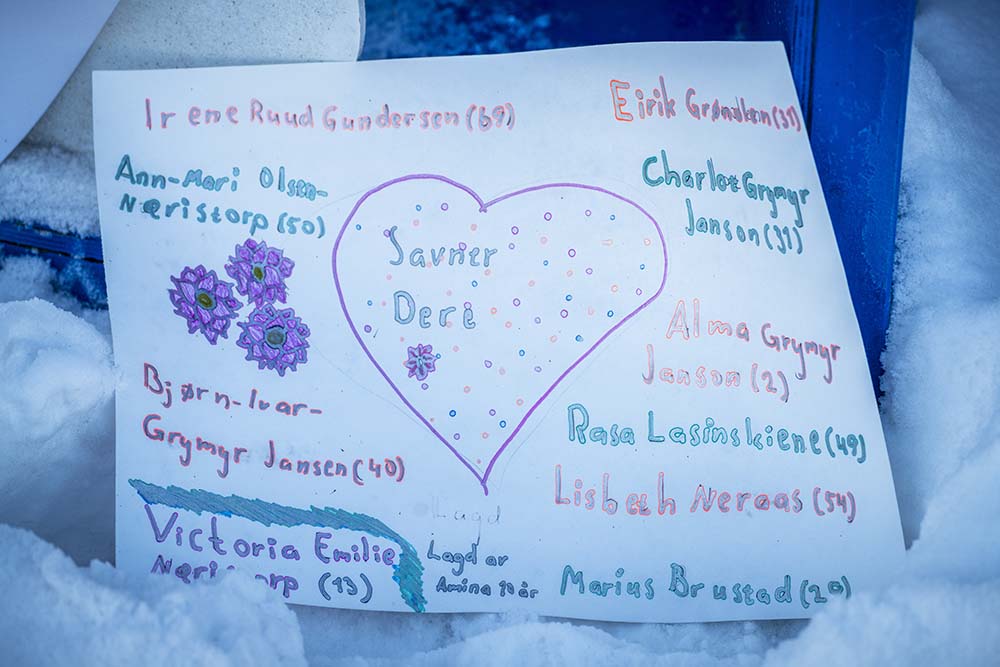 Irene Ruud Gundersen (69)
Ann-Mari Olsen-
Næristorp (50)
Savner
Dere
Bjørn-Ivar-
Grymyr Jansen (40)
Victoria Emilie
Næristorp (13)
Lagd
Lagd av
Amina 10 år
Eirik Grønolen (31)
Charlot Grymyr
Janson (31)
Alma Grymyr
Janson (2)
Rasa Lasinskiene (49)
Lisbeth Neraas (54)
Marius Brustad (29)